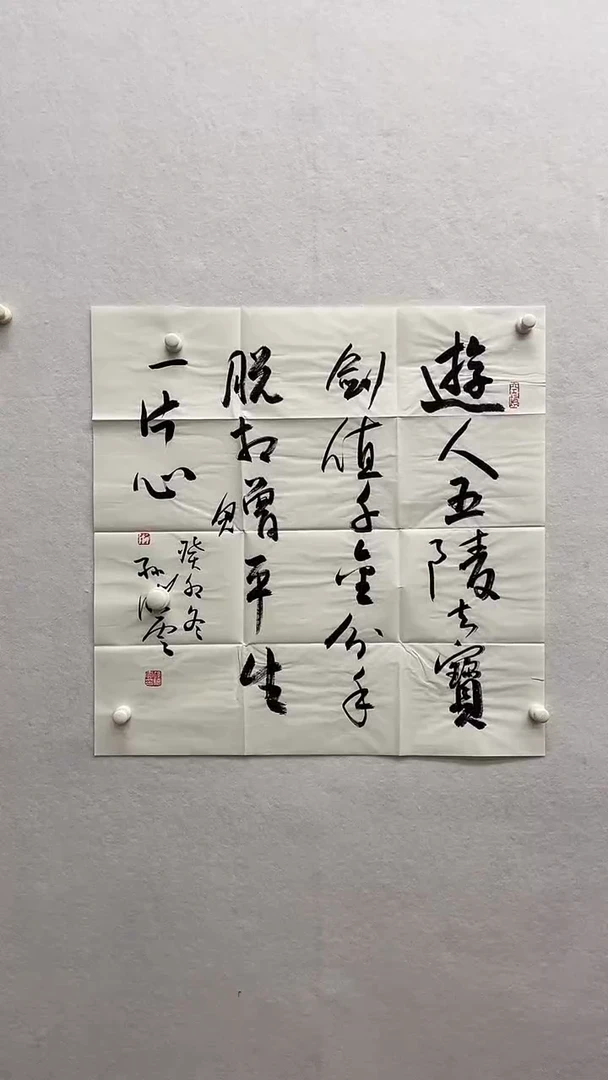 遊人五陵去寶
劍值千金分手
脱相贈平生
一片心
癸卯冬
孙雲